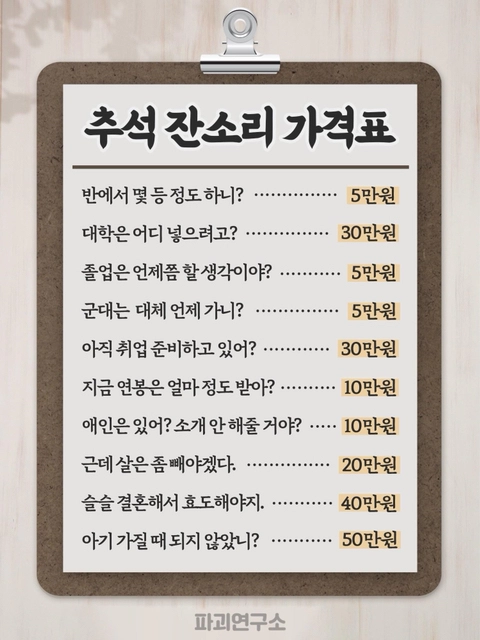 추석 잔소리 가격표
반에서 몇 등 정도 하니? ················ 5만원
대학은 어디 넣으려고? ················ 30만원
졸업은 언제쯤 할 생각이야? ············ 5만원
군대는 대체 언제 가니? ················ 5만원
아직 취업 준비하고 있어? ············· 30만원
지금 연봉은 얼마 정도 받아? ·········· 10만원
애인은 있어? 소개 안 해줄 거야? ····· 10만원
근데 살은 좀 빼야겠다. ················ 20만원
슬슬 결혼해서 효도해야지. ············ 40만원
아기 가질 때 되지 않았니? ············ 50만원
파괴연구소